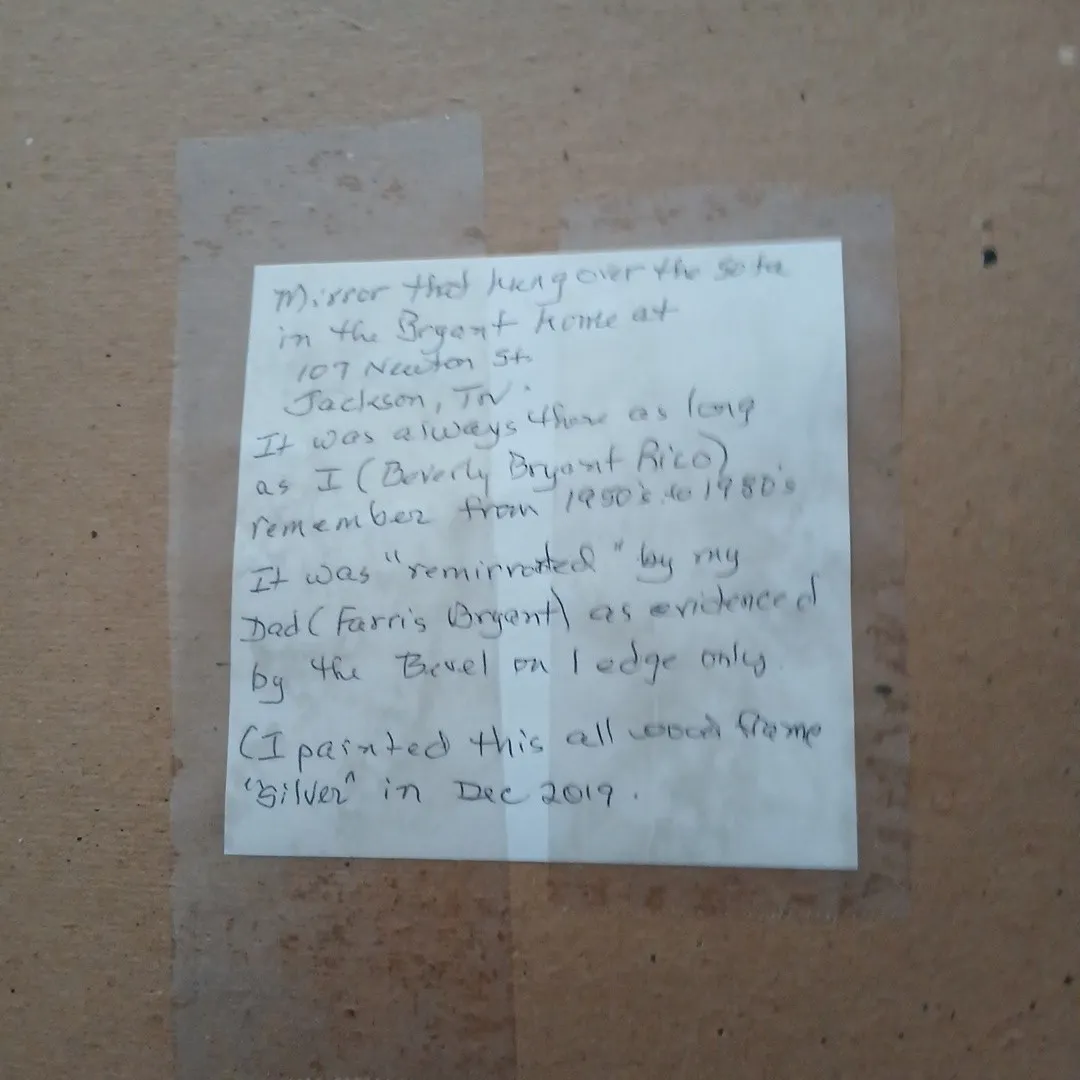 Mirror that hung over the sofa
in the Bryant home at
107 Newton St.
Jackson, TN.
It was always there as long
as I (Beverly Bryant Rico)
remember from 1950's to 1980's
It was "remirrored" by my
Dad (Farris Bryant) as evidenced
by the Bevel on 1 edge only.
(I painted this all wood frame
"Silver" in Dec 2019.